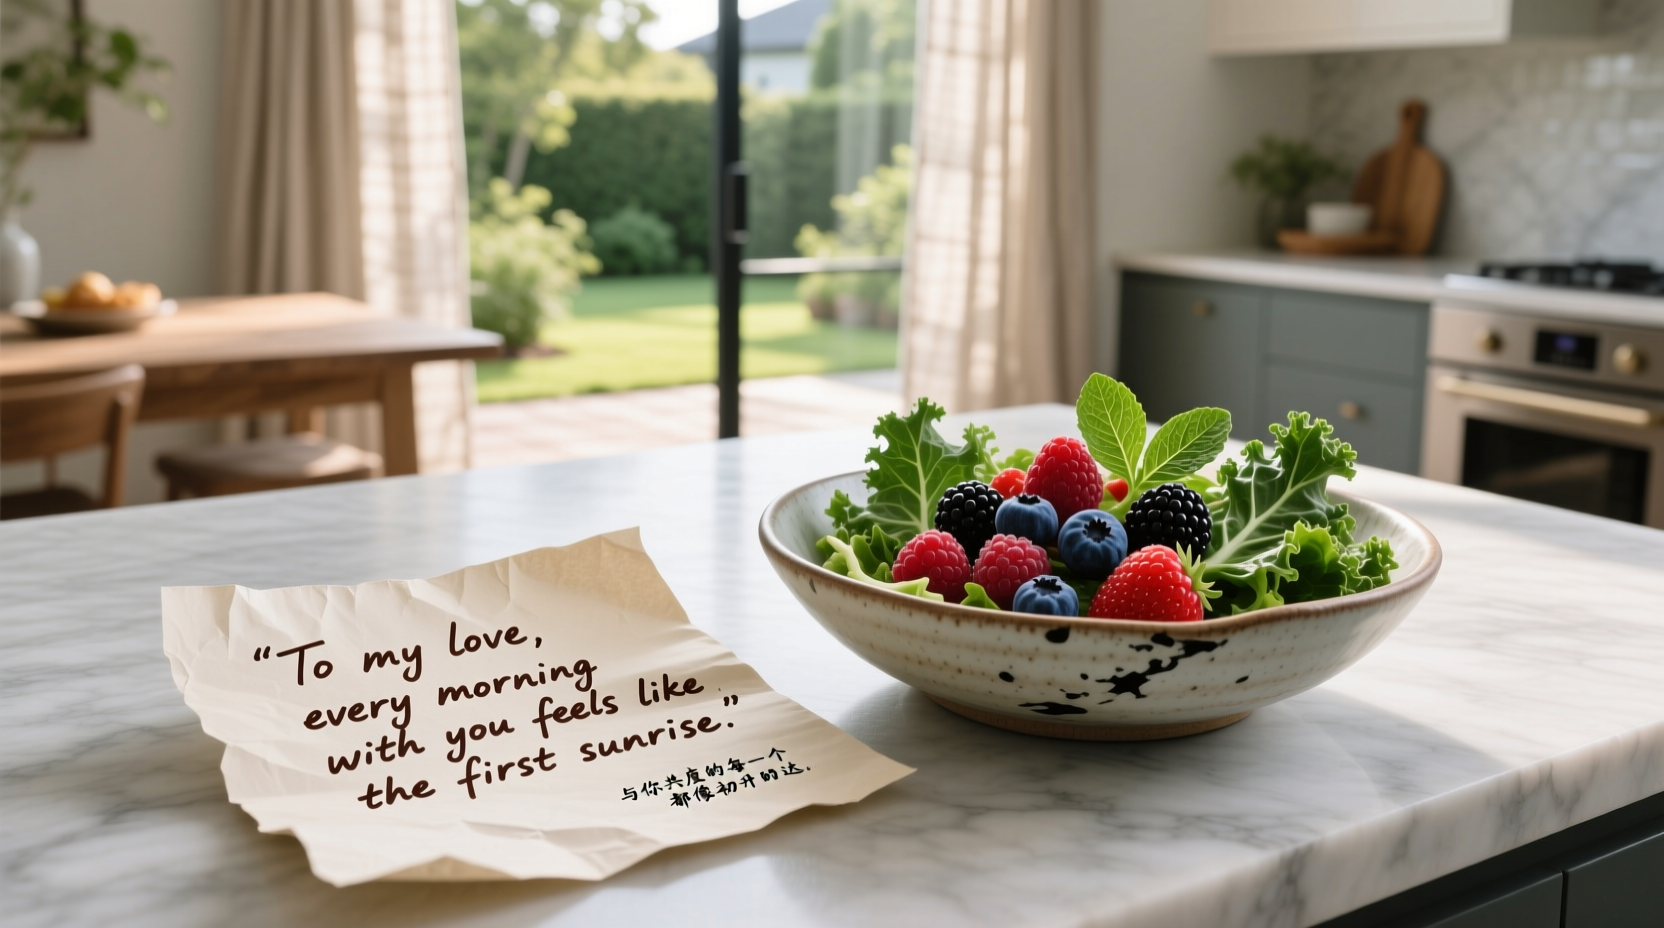 “To my love,
every morning
with you feels like
the first sunrise.”
与你共度的每一个
都像初升的达.